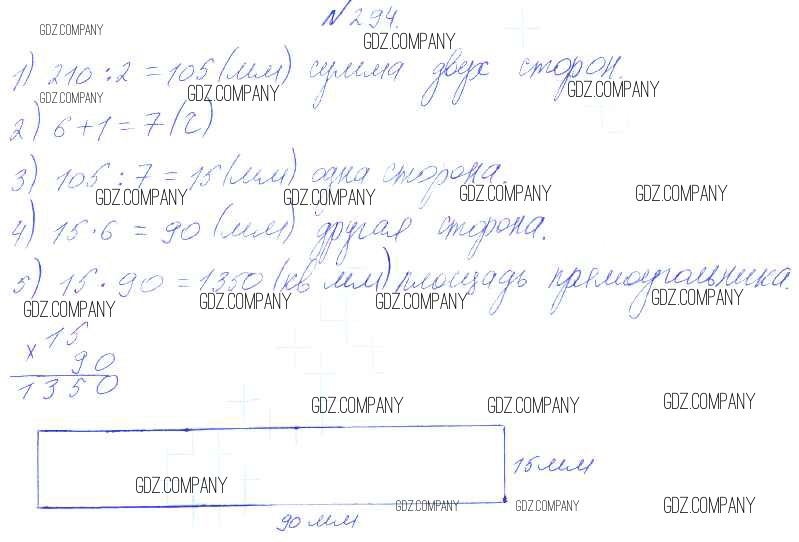 №294.
GDZ.COMPANY
GDZ.COMPANY
1) 210 : 2 = 105 (мм) сумма двух сторон.
GDZ.COMPANY GDZ.COMPANY GDZ.COMPANY
2) 6 + 1 = 7 (ч)
3) 105 : 7 = 15 (мм) одна сторона.
GDZ.COMPANY GDZ.COMPANY GDZ.COMPANY GDZ.COMPANY
4) 15 · 6 = 90 (мм) другая сторона.
5) 15 · 90 = 1350 (кв мм) площадь прямоугольника.
GDZ.COMPANY GDZ.COMPANY GDZ.COMPANY GDZ.COMPANY
× 15
90
1350
GDZ.COMPANY GDZ.COMPANY GDZ.COMPANY
15 мм
GDZ.COMPANY
GDZ.COMPANY GDZ.COMPANY GDZ.COMPANY
90 мм